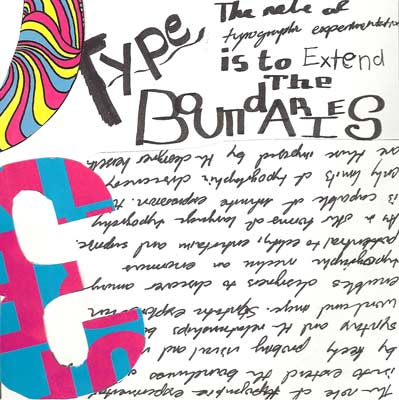 Type, The role of
typographic experimentatio
is to Extend
The
BOUNDARIES
The role of typographic experimentat
is to extend the boundaries
by freely probing visual and
syntax and the relationships be
word and image. Syntatic exploration
enables designers to discover among
typographic media an enormous
potential to edify, entertain and suprise.
As a the forms of language typography
is capable of infinite expansion. the
only limits of typographic discovery
are those imposed by the designer